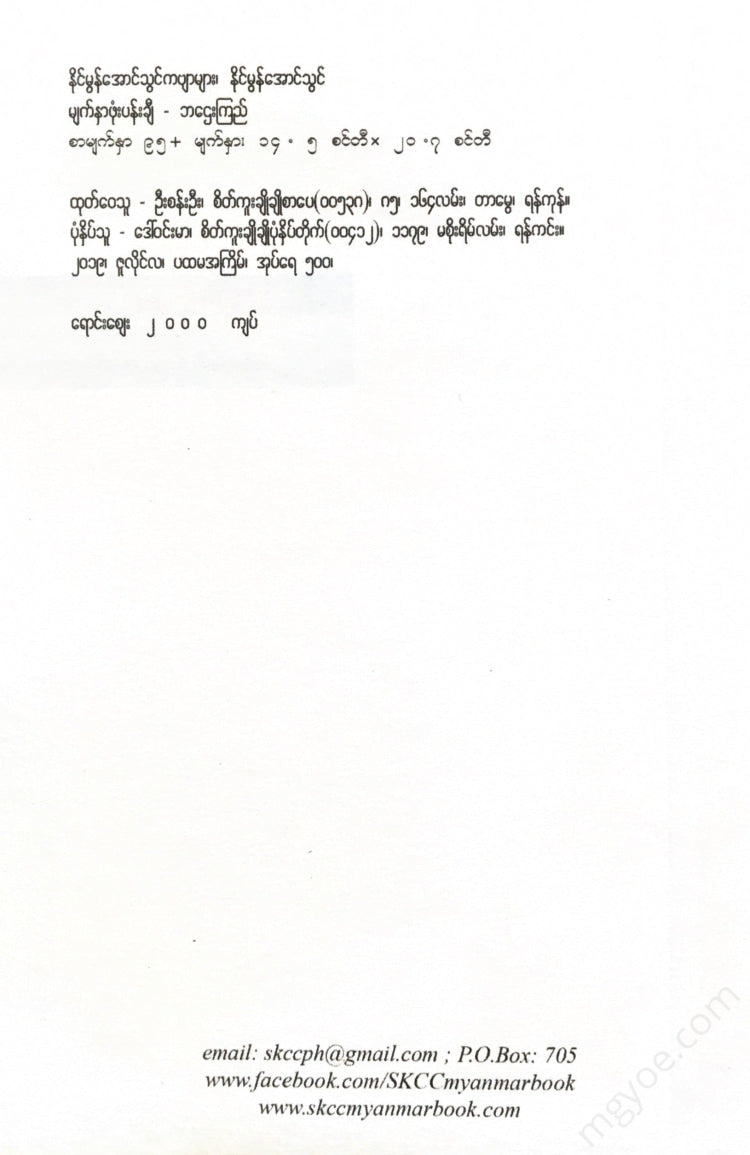 နိုင်မွန်အောင်သွင်ကဗျာများ၊ နိုင်မွန်အောင်သွင်
မျက်နှာဖုံးပန်းချီ - ဘဌေးကြည်
စာမျက်နှာ ၉၅+ မျက်နှား ၁၄ . ၅ စင်တီ× ၂၁ .၇ စင်တီ
ထုတ်ဝေသူ - ဦးစန်းဦး၊ စိတ်ကူးချိုချိုစာပေ(၀၀၅၃၈)၊ ဂ၅၊ ၁၆၄လမ်း၊ တာမွေ၊ ရန်ကုန်။
ပုံနှိပ်သူ - ဒေါ်ဝင်းမာ၊ စိတ်ကူးချိုချိုပုံနှိပ်တိုက်(၀၀၄၁၂)၊ ၁၁၇၉၊ မစိုးရိမ်လမ်း၊ ရန်ကင်း။
၂၀၁၉၊ ဇူလိုင်လ၊ ပထမအကြိမ်၊ အုပ်ရေ ၅၀၀၊
ရောင်းဈေး ၂ ၀ ၀ ၀ ကျပ်
email: skccph@gmail.com ; P.O.Box: 705
www.facebook.com/SKCCmyanmarbook
www.skccmyanmarbook.com
mgyoe.com